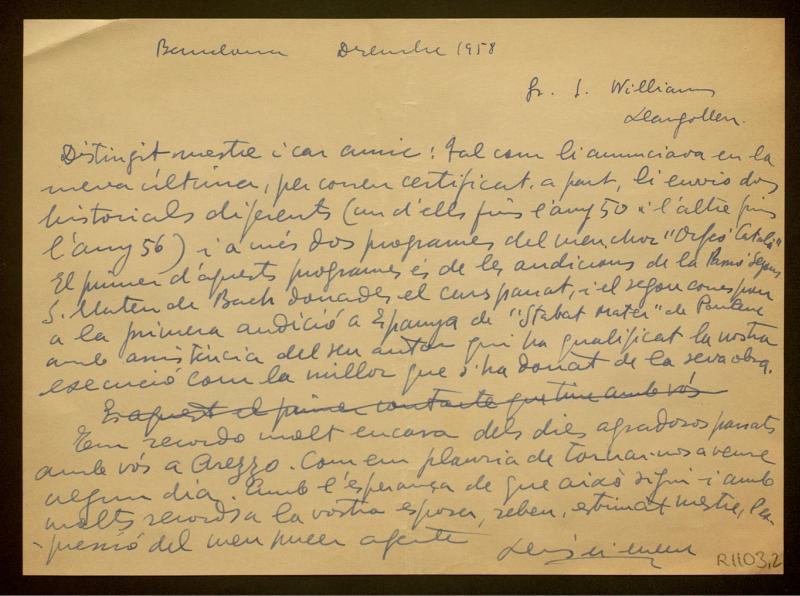 Barcelona Desembre 1958
Sr. S. Williams
Llangollen.
Distingit mestre i car amic: Tal com li anunciava en la
meva última, per correu certificat a part, li envio dos
historials diferents (un d'ells fins l'any 50 i l'altre fins
l'any 56) i a més dos programes del meu chor "Orfeó Català"
El primer d'aquests programes és de les audicions de la Passió segons
S. Mateu de Bach donades el curs passat, i el segon correspon
a la primera audició a Espanya de "Stabat Mater" de Poulenc
amb assistència del seu autor qui ha qualificat la nostra
execució com la millor que s'ha donat de la seva obra.
Es aquest el primer contacte que tinc amb vós
Em recordo molt encara dels dies agradosos passats
amb vós a Arezzo. Com em plauria de tornar-nos a veure
algun dia. Amb l'esperança de que això sigui i amb
molts records a la vostra esposa, rebeu, estimat mestre, l'ex-
-pressió del meu sincer afecte
R1103,2